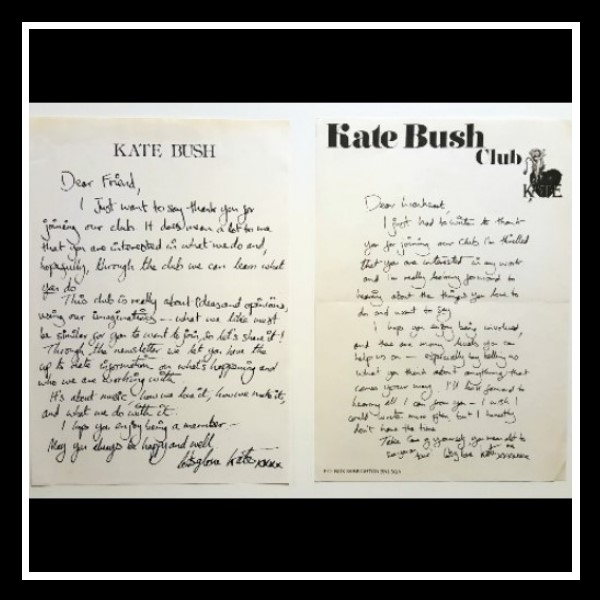 KATE BUSH
Dear Friend,
I Just want to say thank you for
joining our club. It does mean a lot to me
that you are interested in what we do and,
hopefully, through the club we can learn what
you do.
This club is really about ideas and opinions,
using our imaginations -- what we like must
be similar for you to want to join, so let's share it!
Through the newsletter we let you have the
up to date information on what's happening and
who we are working with.
It's about music, how we love it, how we make it,
and what we do with it.
I hope you enjoy being a member -
May you always be happy and well
lots of love Kate xxxxx
Kate Bush
Club
KATE
Dear
I just had to write to thank
you for joining our Club. I'm thrilled
that you are interested in my work
and I'm really looking forward to
hearing about the things you love to
do and want to say.
I hope you enjoy being involved,
and there are many levels you can
help us on - especially by telling us
what you think about anything that
comes your way. I'll look forward to
hearing all I can from you - I wish I
could write more often, but I honestly
don't have the time.
Take Care of yourself, you mean alot to
love Kate xxxxxxx